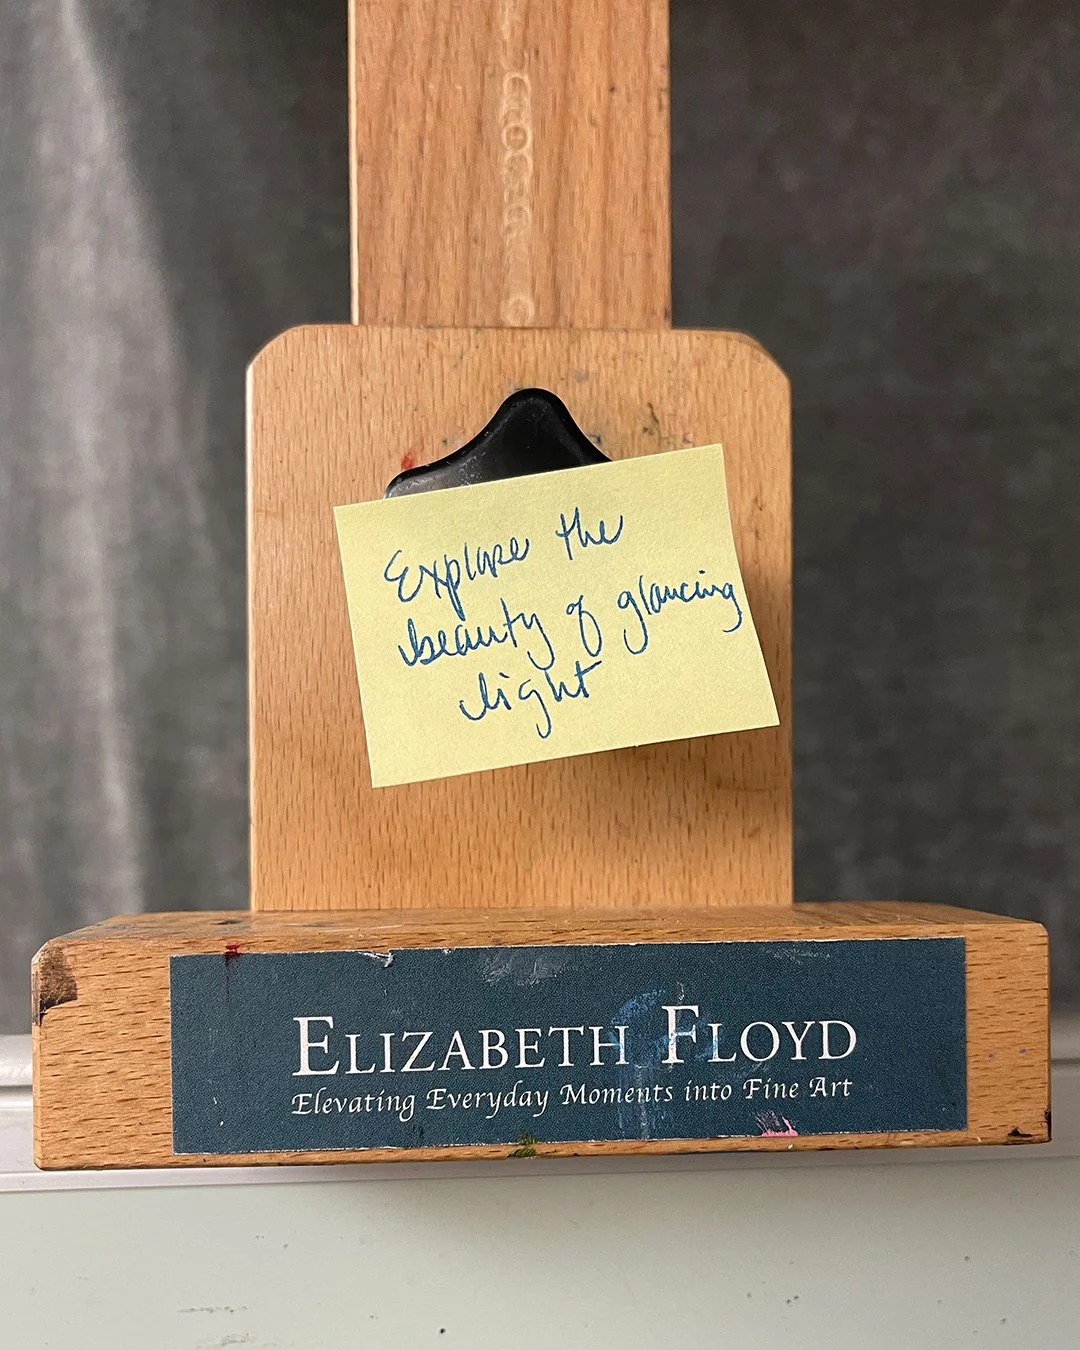 Explore the
beauty of glancing
light
ELIZABETH FLOYD
Elevating Everyday Moments into Fine Art